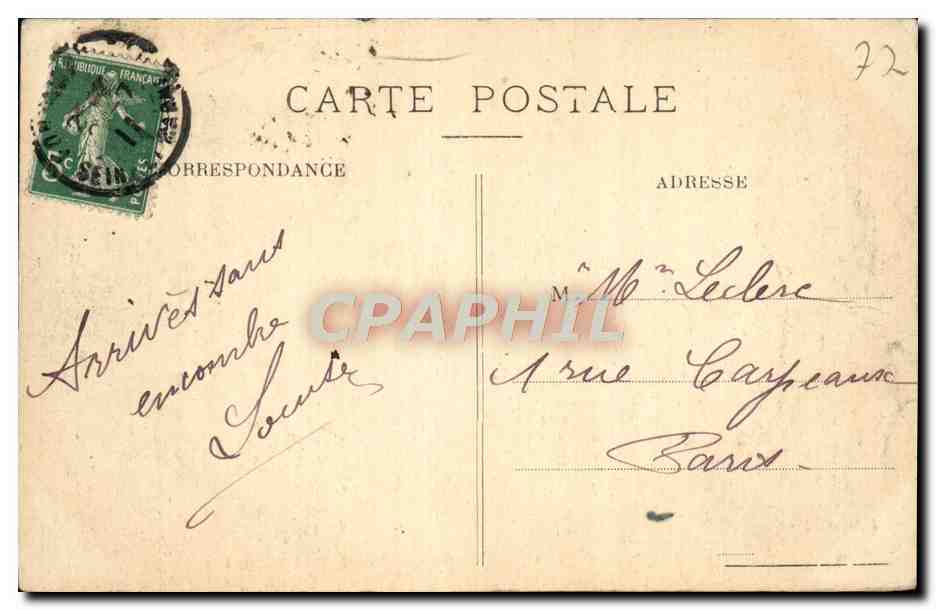 72
RÉPUBLIQUE FRANÇAISE
5c
POSTES
CARTE POSTALE
CORRESPONDANCE
ADRESSE
Arrivés sans
encombre
Louise
M. Mme Leclerc
1 rue Carpeaux
Paris.
CPAPHIL